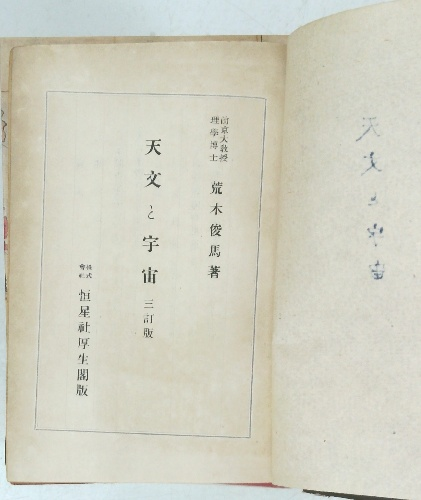 天文と宇宙
前京大教授
理學博士
荒木俊馬著
天文と宇宙 三訂版
株式
會社
恒星社厚生閣版